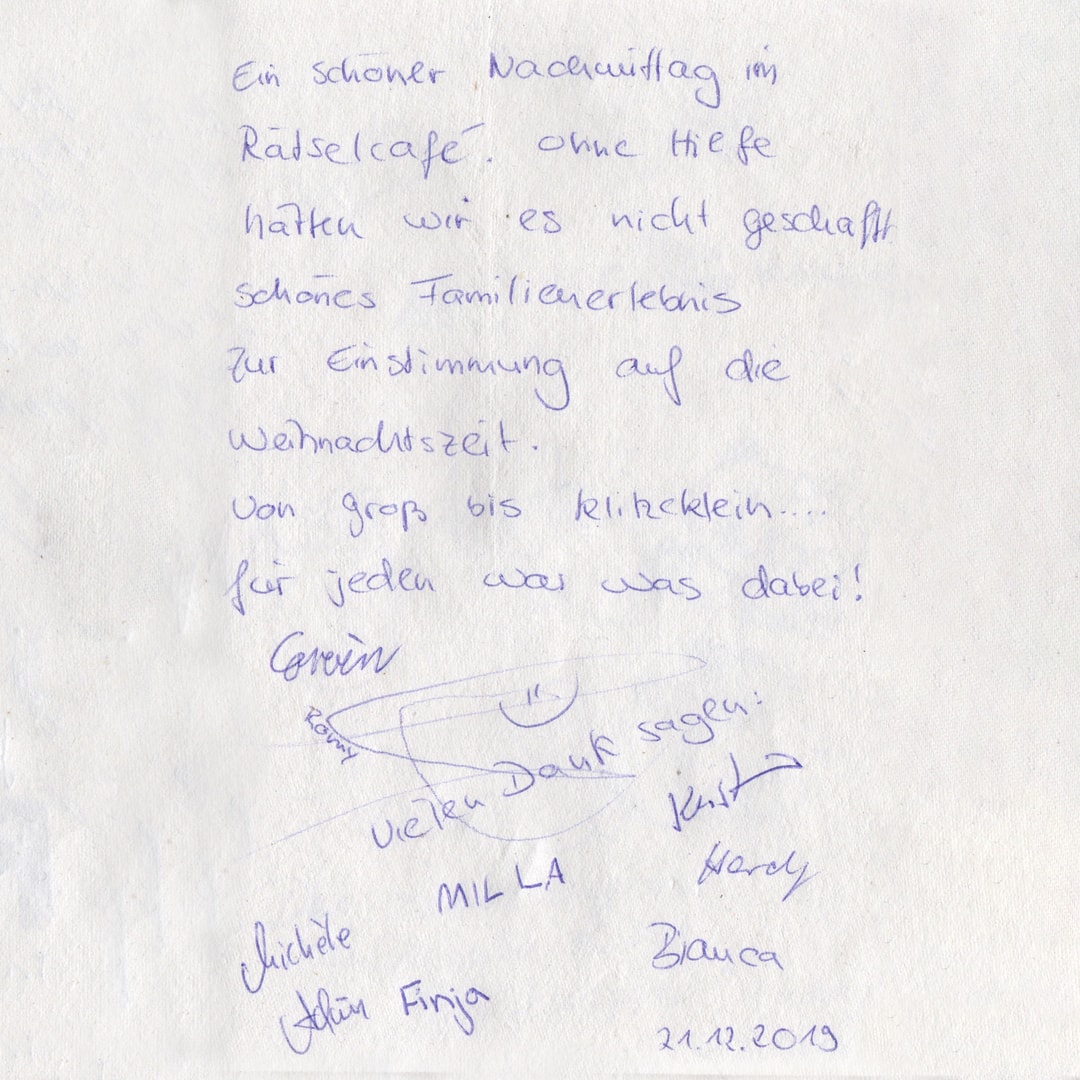 Ein schöner Nachmittag im
Rätselcafé. ohne Hilfe
hätten wir es nicht geschafft
schönes Familienerlebnis
zur Einstimmung auf die
Weihnachtszeit.
von groß bis klitzeklein....
für jeden war was dabei!
Romy
Vielen Dank sagen:
MILLA
Hardy
Michèle
Bianca
Finja
21.12.2019